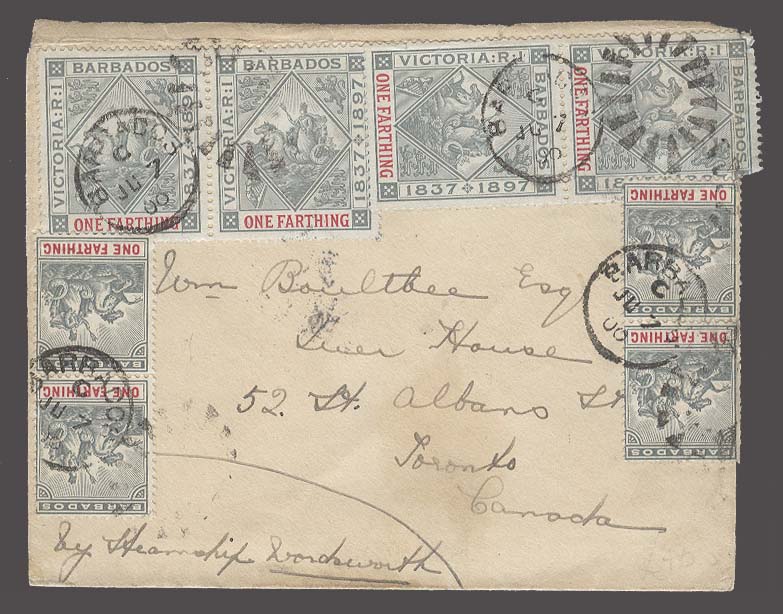 VICTORIA:R:I BARBADOS 1837+1897 ONE FARTHING
VICTORIA:R:I BARBADOS 1837+1897 ONE FARTHING
VICTORIA:R:I BARBADOS 1837+1897 ONE FARTHING
VICTORIA:R:I BARBADOS 1837+1897 ONE FARTHING
BARBADOS C JU 7
ONE FARTHING
ONE FARTHING BARBADOS
ONE FARTHING
ONE FARTHING BARBADOS
BARBADOS C
BARBA C JU 7
Wm Boultbee Esq
House
52. St. Albans St
Toronto
Canada
By Steamship Wordsworth